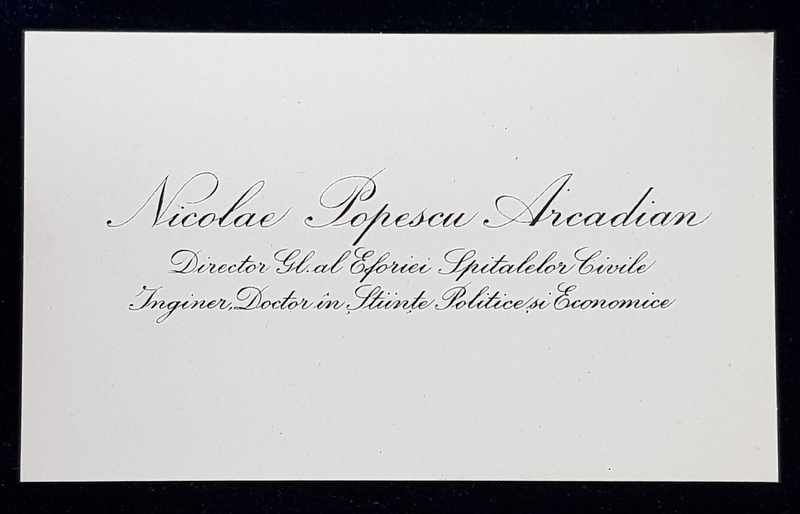 Nicolae Popescu Arcadian
Director Gl. al Eforiei Spitalelor Civile
Inginer, Doctor în Științe Politice și Economice